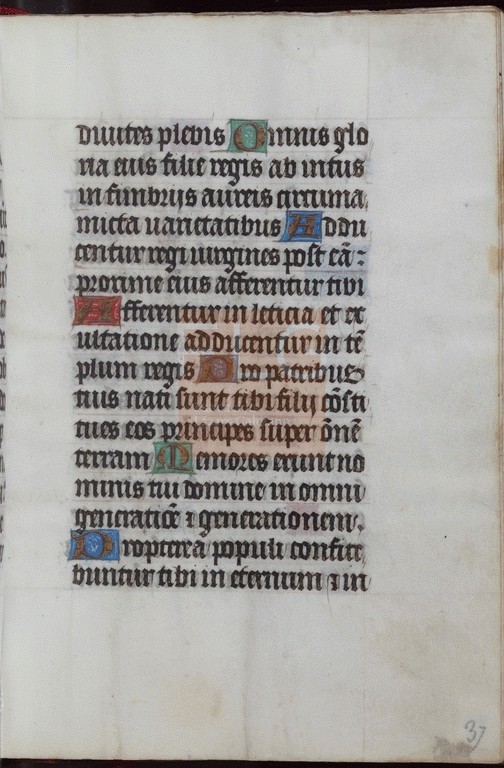 diuites plebis Omnis glo
ria eius filie regis ab intus
in fimbrijs aureis circuma
micta uarietatibus Addu
centur regi uirgines post eā :
proxime eius afferentur tibi
Afferentur in leticia et ex
ultatione adducentur in tē
plum regis Pro patribus
tuis nati sunt tibi filij cōsti
tues eos principes super ōnē
terram Memores erunt no
minis tui domine in omni
generatiōē ⁊ generationem.
Propterea populi confite
buntur tibi in eternum ⁊ in
37